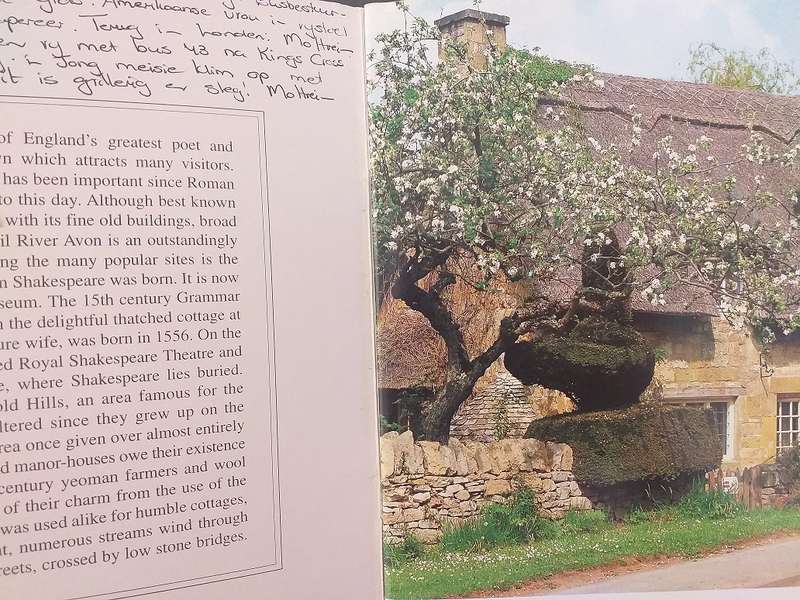 Amerikaanse vrou in rystoel
Terug in Londen:
ry met bus 43 na Kings Cross
jong meisie klim op met
is grillerig en sleg!
of England's greatest poet and
which attracts many visitors.
has been important since Roman
to this day. Although best known
with its fine old buildings, broad
River Avon is an outstandingly
the many popular sites is the
Shakespeare was born. It is now
The 15th century Grammar
the delightful thatched cottage at
wife, was born in 1556. On the
Royal Shakespeare Theatre and
where Shakespeare lies buried.
Hills, an area famous for the
since they grew up on the
once given over almost entirely
manor-houses owe their existence
century yeoman farmers and wool
of their charm from the use of the
was used alike for humble cottages,
numerous streams wind through
crossed by low stone bridges.